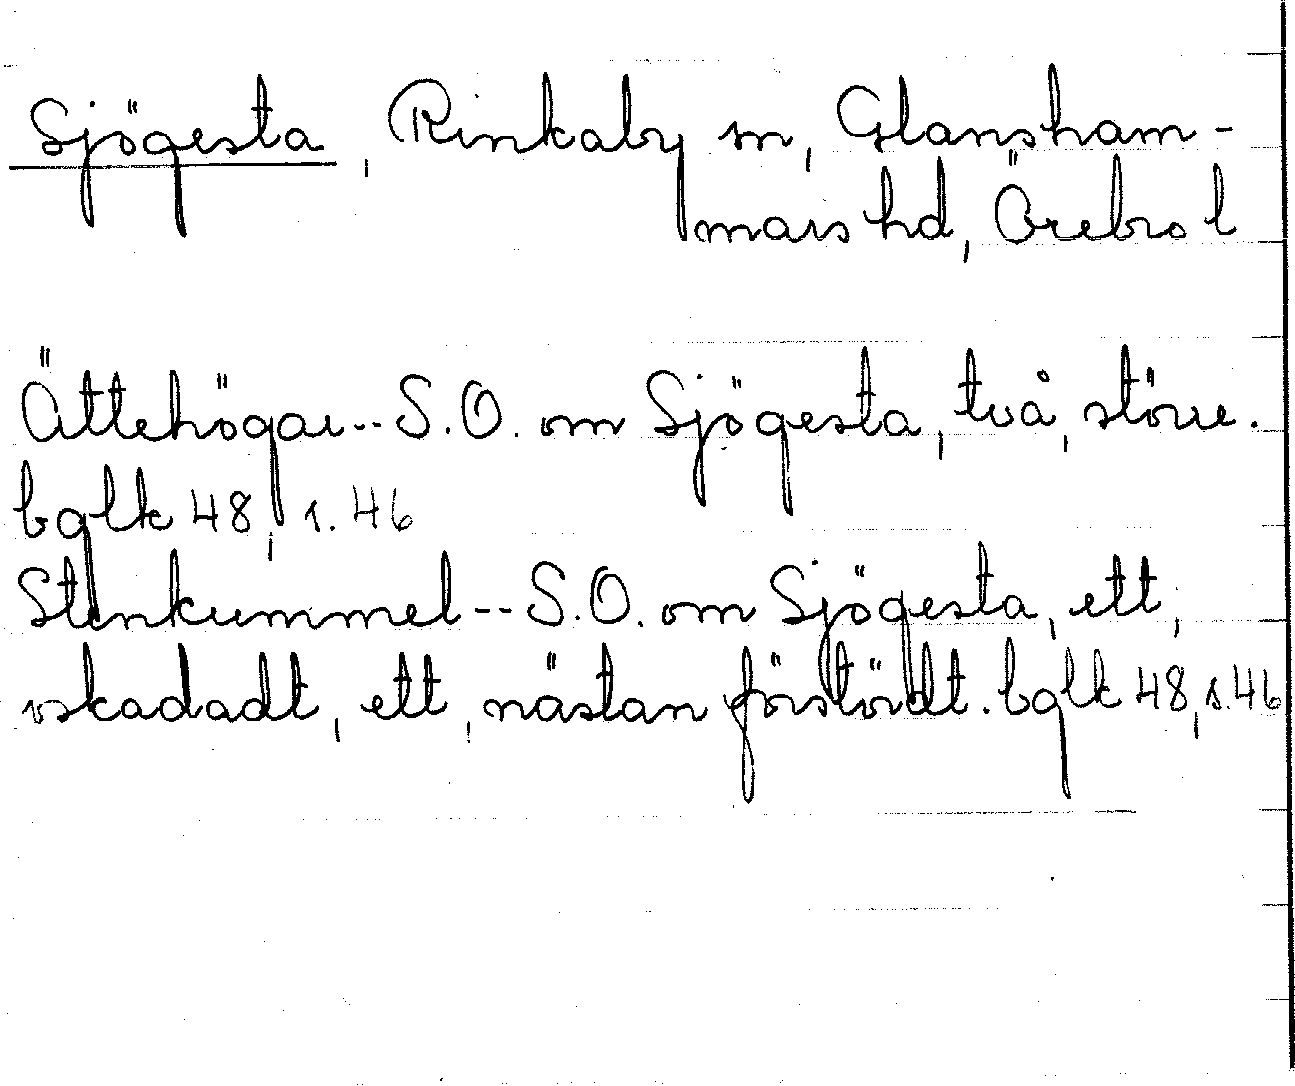 Sjögesta, Rinkaby sn, Glansham-
mars hd, Örebro l
Ättehögar-- S.O. om Sjögesta, två, större.
bglk 48, s. 46
Stenkummel-- S.O. om Sjögesta, ett,
oskadadt, ett, nästan förstördt. bglk 48, s. 46